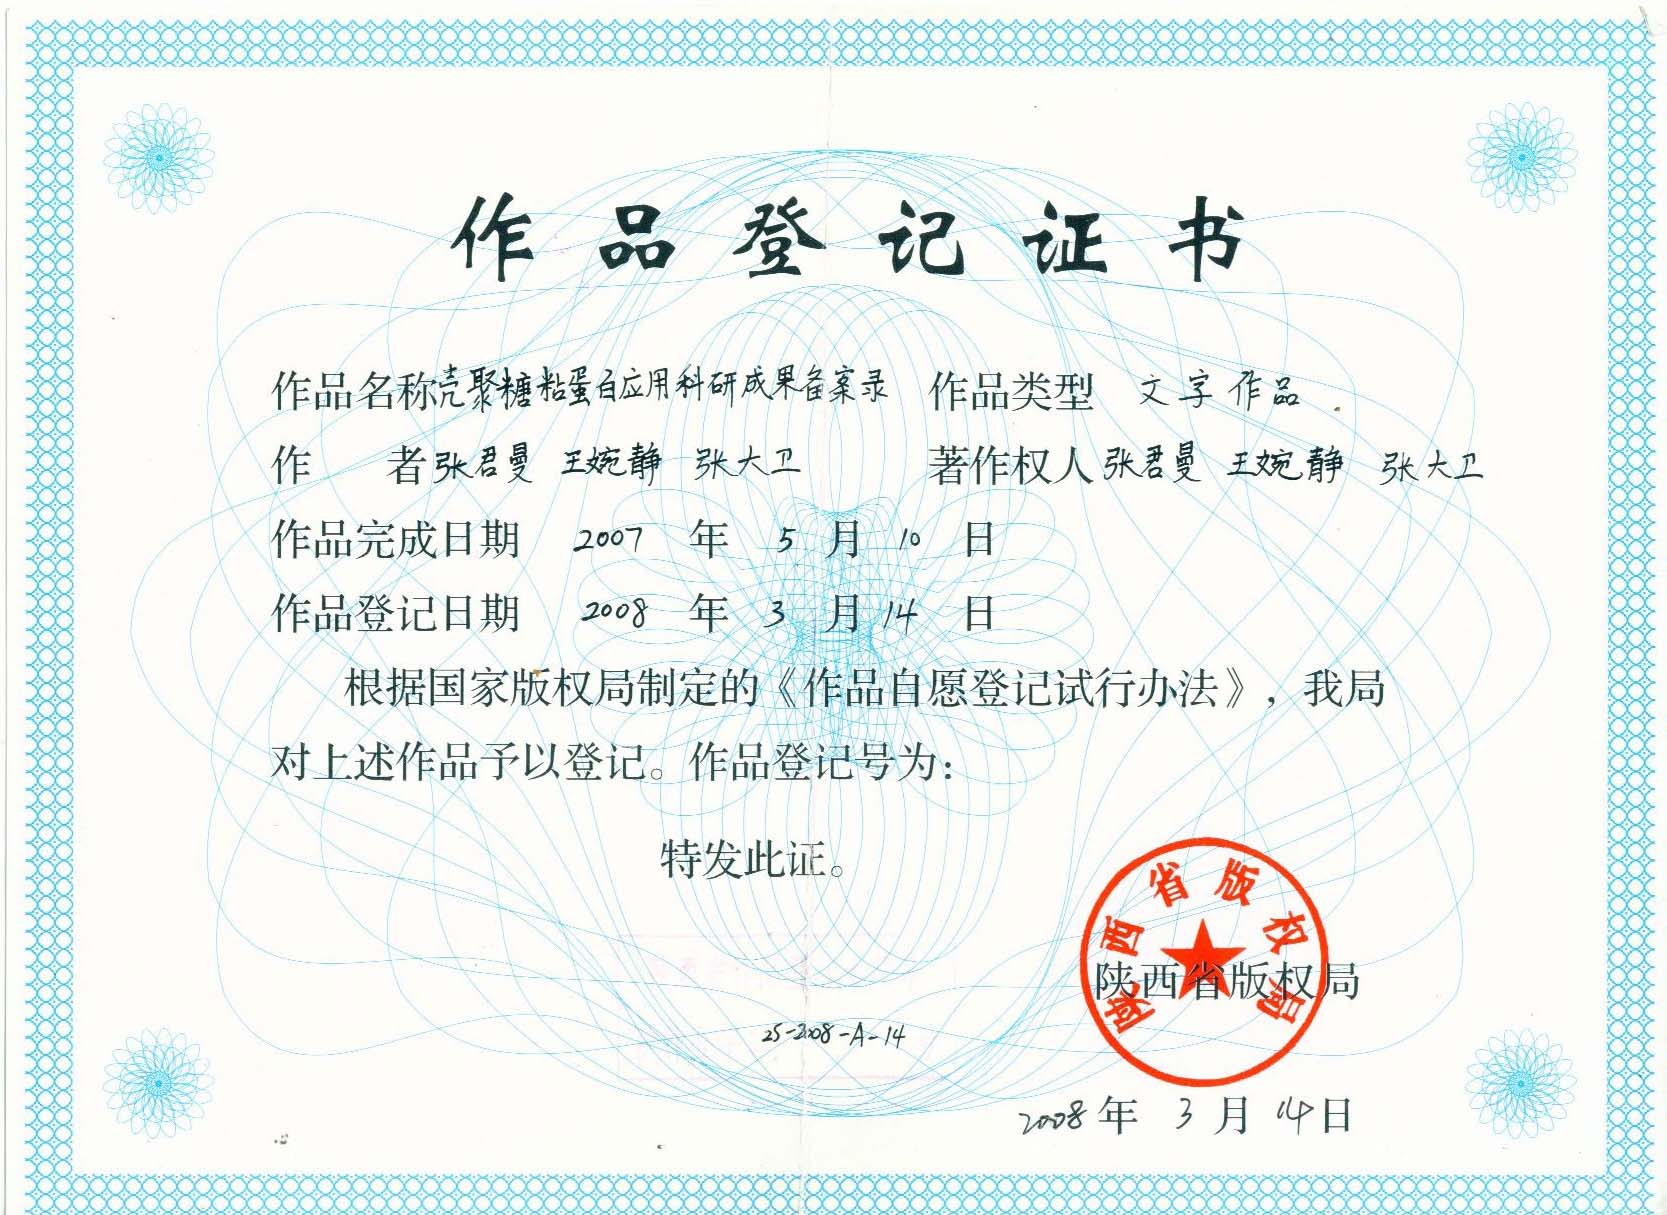 作品登记证书
作品名称 壳聚糖粘蛋白应用科研成果备案录 作品类型 文字作品
作 者 张君曼 王婉静 张大卫 著作权人 张君曼 王婉静 张大卫
作品完成日期 2007 年 5 月 10 日
作品登记日期 2008 年 3 月 14 日
根据国家版权局制定的《作品自愿登记试行办法》，我局
对上述作品予以登记。作品登记号为：
特发此证。
陕西省版权局
陕西省版权局
25-2008-A-14
2008 年 3 月 14 日